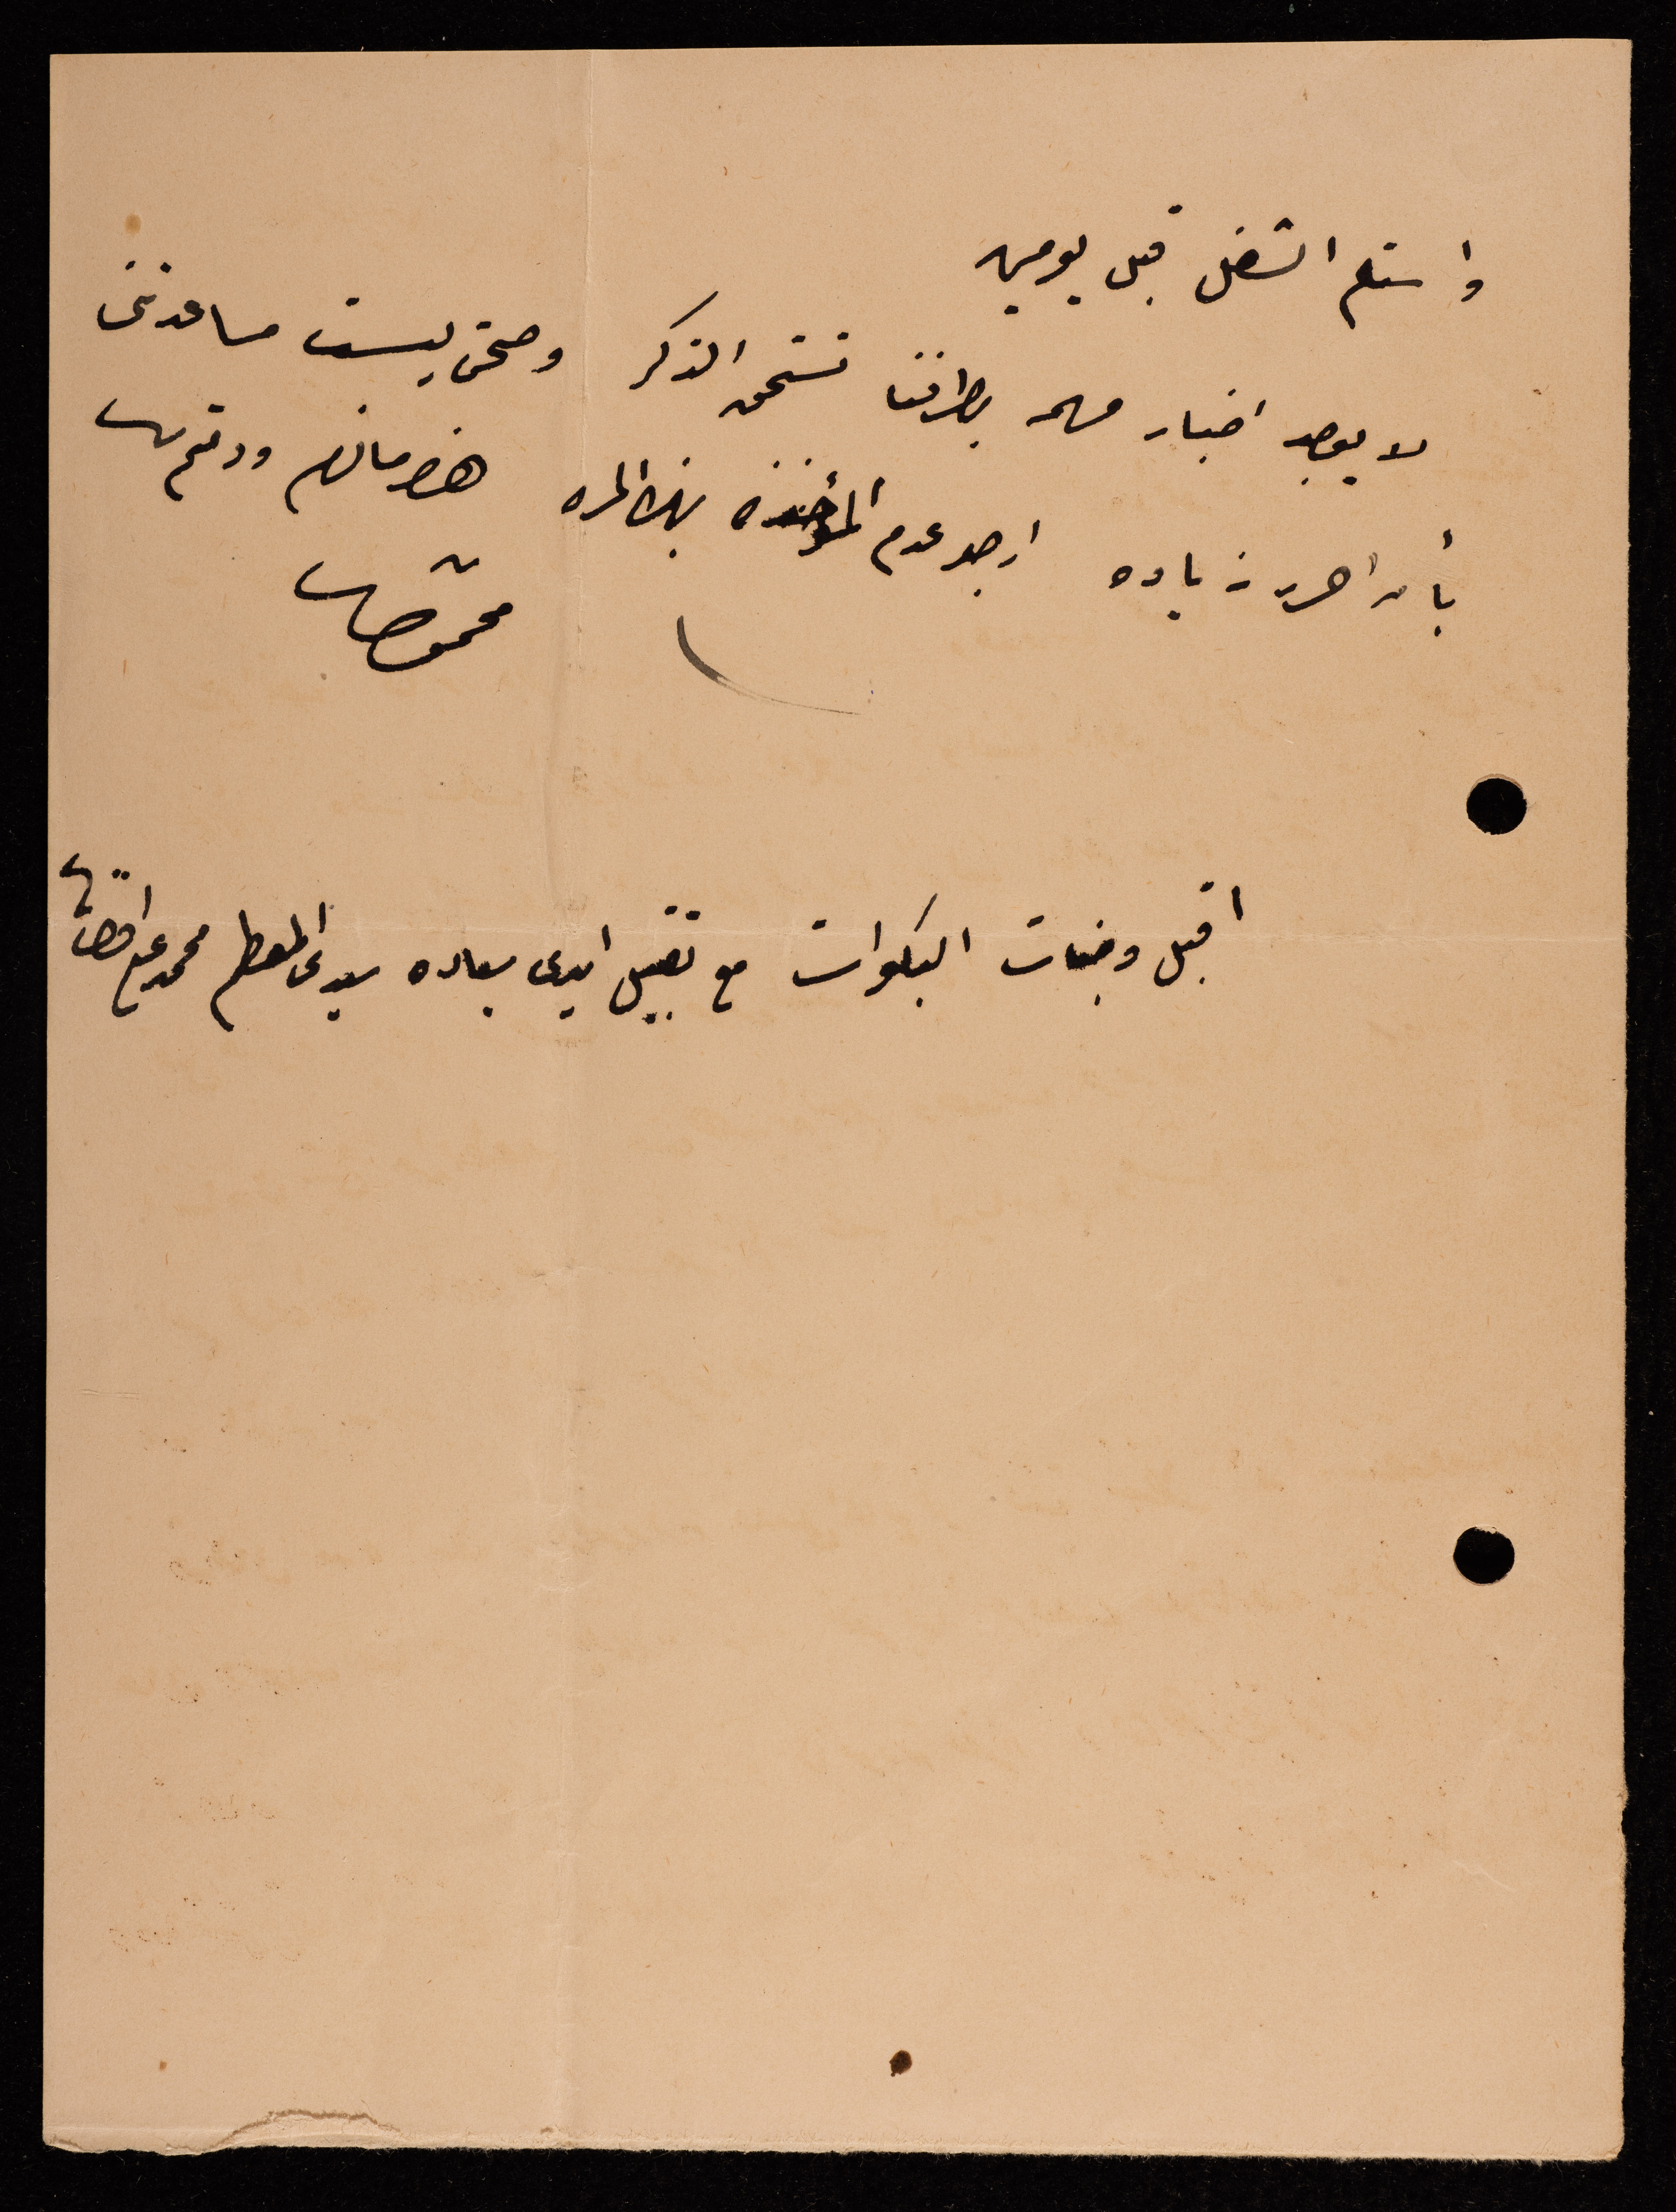 واستلم الشغل قبل يومين
لا يوجد اخبار مهمه بطرفنا تستحق الذكر وصحتى ليست مساعدتنى
بأن احرر زياده ارجو عدم المؤاخذه بهذه المره هذا مالزم ودمتم
اقبل وجنات البكوات مع تقبيل ايدى سعاده سيدى المعظم محمد على